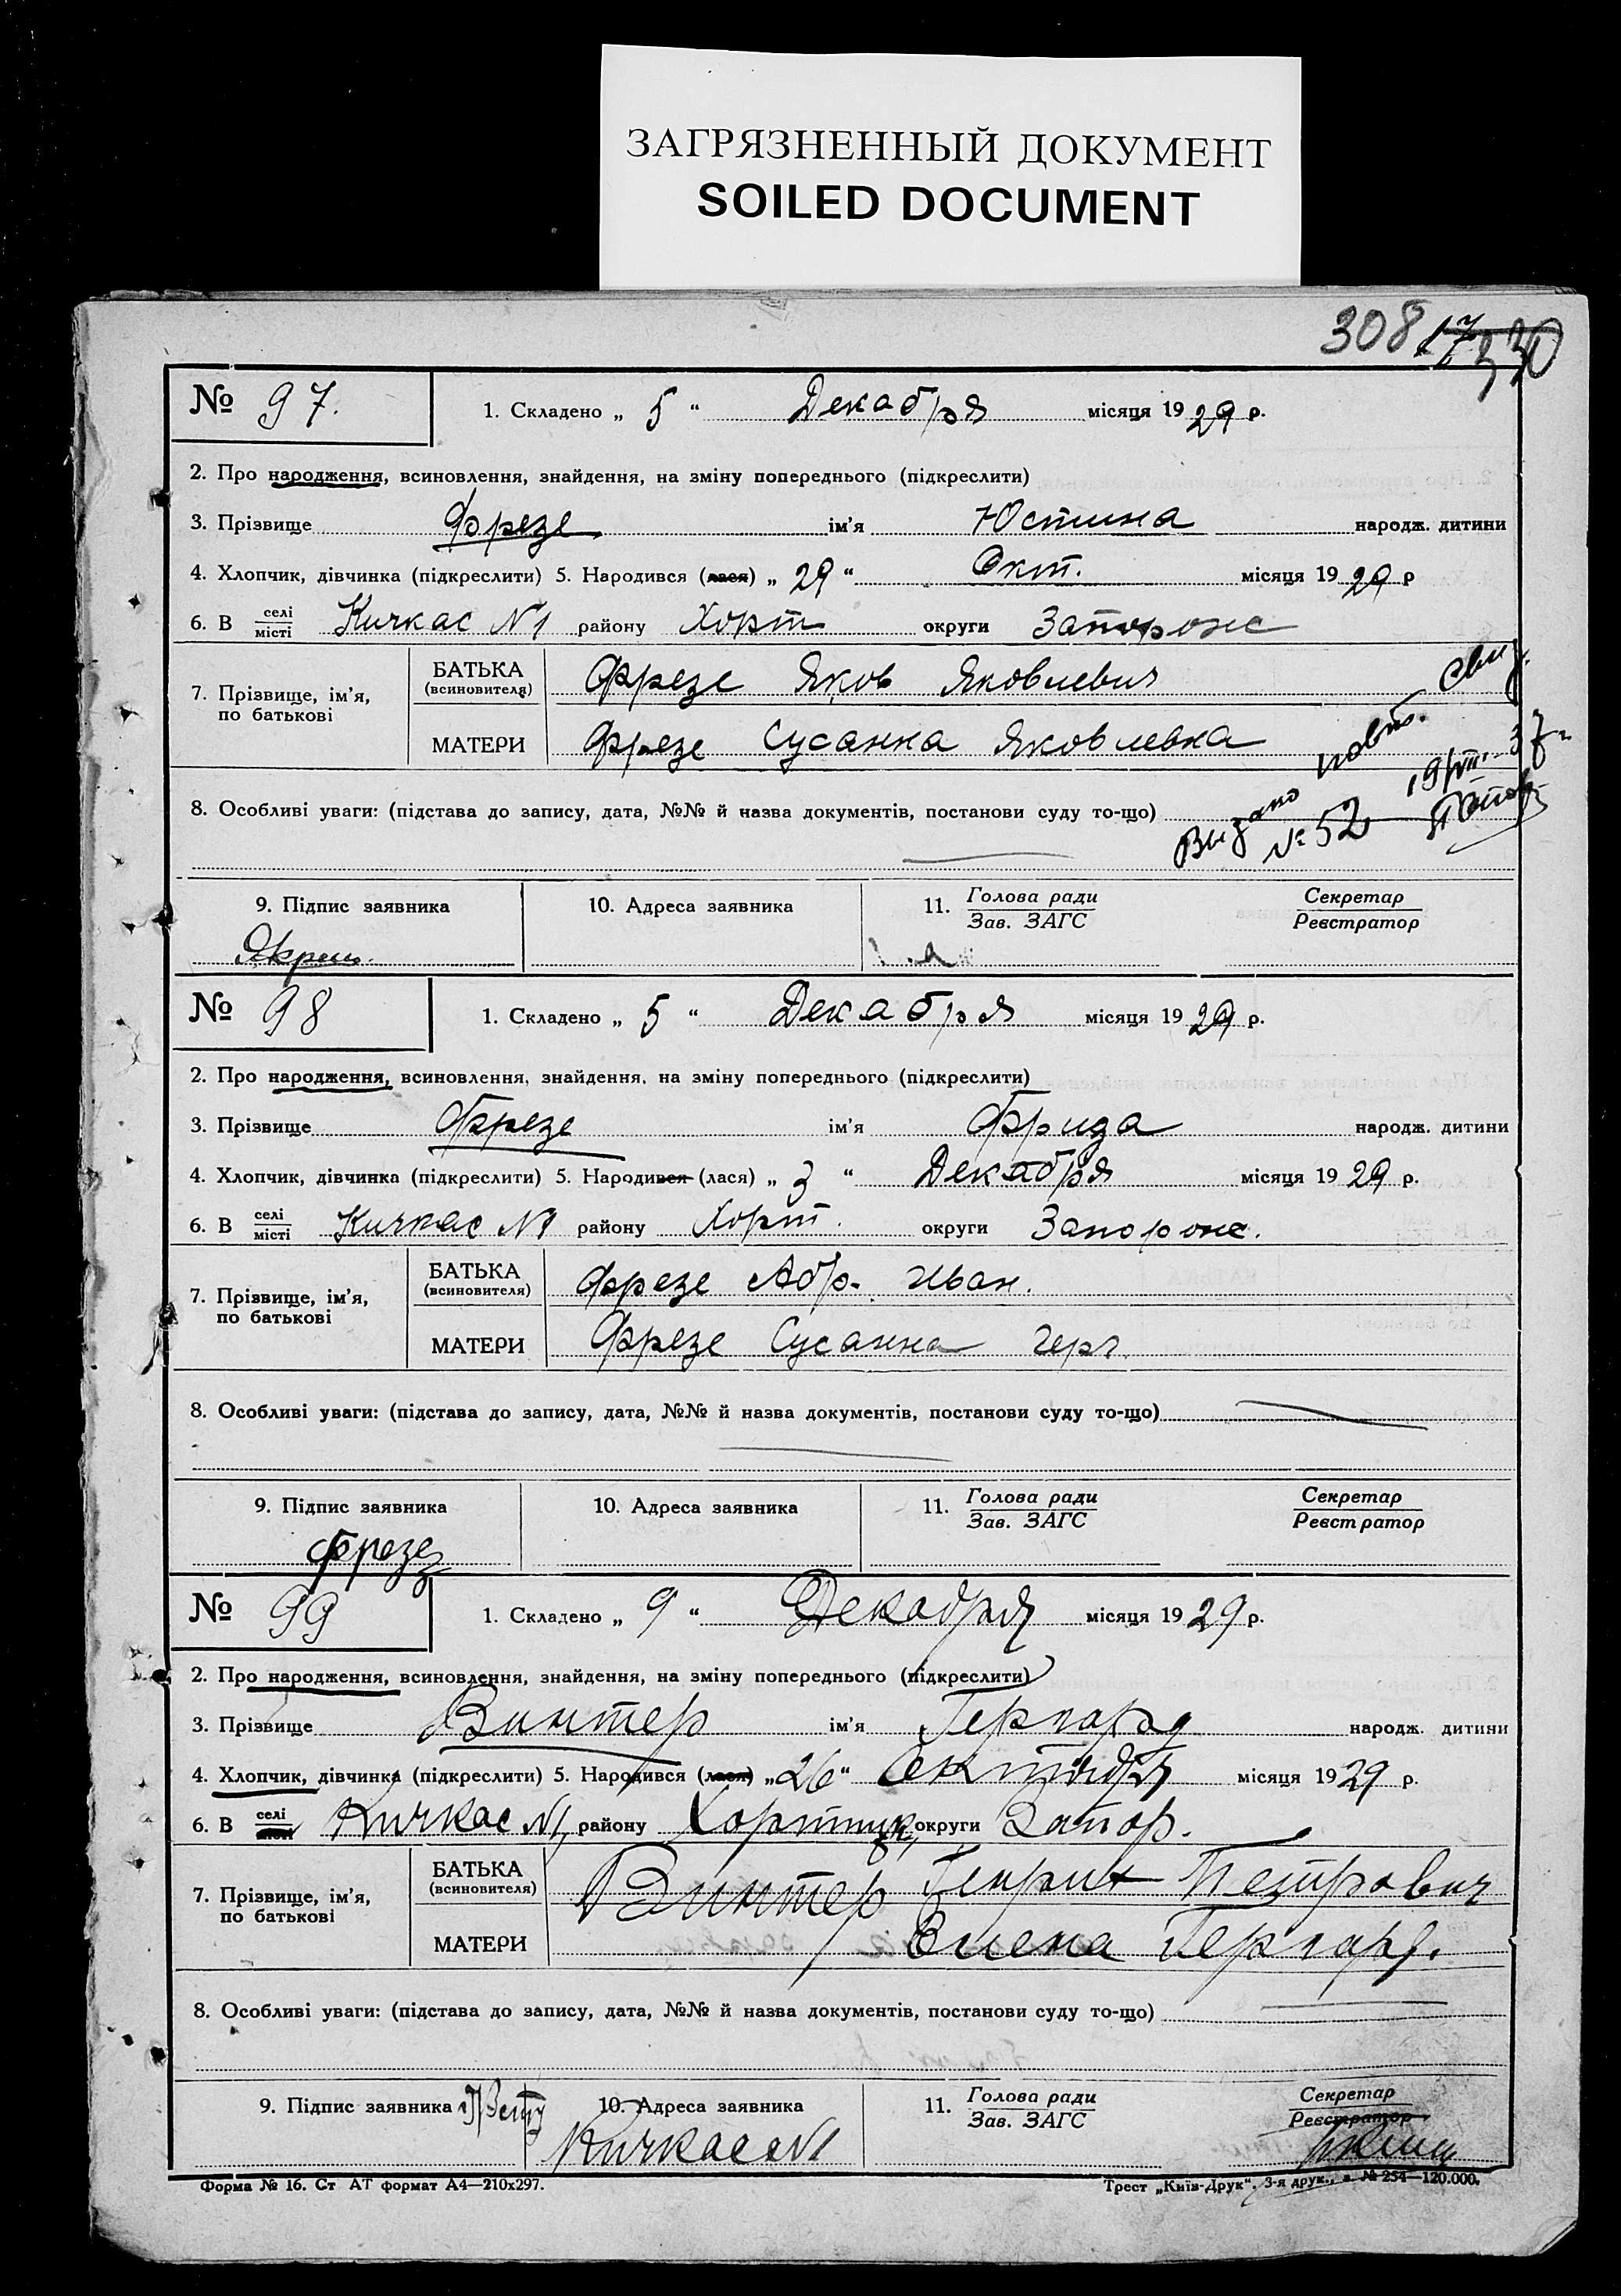 ЗАГРЯЗНЕННЫЙ ДОКУМЕНТ
SOILED DOCUMENT
308 330
№ 97. 1. Складено „ 5 “ Декабря місяця 1929 р.
2. Про народження, всиновлення, знайдення, на зміну попереднього (підкреслити)
3. Прізвище Фрезе ім’я Юстина народж. дитини
4. Хлопчик, дівчинка (підкреслити) 5. Народився (лася) „ 29 “ Окт. місяця 1929 р
6. В селі місті Кичкас №1 району Хорт округи Запорож
7. Прізвище, ім’я, по батькові
БАТЬКА (всиновителя) Фрезе Яков Яковлевич
МАТЕРИ Фрезе Сусанна Яковлевна
Выдано повт. свид.
№ 52 19/VII 37 г.
8. Особливі уваги: (підстава до запису, дата, №№ й назва документів, постанови суду то-що)
9. Підпис заявника 10. Адреса заявника 11. Голова ради Зав. ЗАГС Секретар Реєстратор
№ 98 1. Складено „ 5 “ Декабря місяця 1929 р.
2. Про народження, всиновлення, знайдення, на зміну попереднього (підкреслити)
3. Прізвище Фрезе ім’я Фрида народж. дитини
4. Хлопчик, дівчинка (підкреслити) 5. Народився (лася) „ 3 “ Декабря місяця 1929 р.
6. В селі місті Кичкас №1 району Хорт. округи Запорож.
7. Прізвище, ім’я, по батькові
БАТЬКА (всиновителя) Фрезе Абр. Иван.
МАТЕРИ Фрезе Сусанна Герг.
8. Особливі уваги: (підстава до запису, дата, №№ й назва документів, постанови суду то-що)
9. Підпис заявника 10. Адреса заявника 11. Голова ради Зав. ЗАГС Секретар Реєстратор
Фрезе
№ 99 1. Складено „ 9 “ Декабря місяця 1929 р.
2. Про народження, всиновлення, знайдення, на зміну попереднього (підкреслити)
3. Прізвище Винтер ім’я Гергард народж. дитини
4. Хлопчик, дівчинка (підкреслити) 5. Народився (лася) „ 26 “ Октября місяця 1929 р.
6. В селі місті Кичкас №1, району Хортицк, округи Запор.
7. Прізвище, ім’я, по батькові
БАТЬКА (всиновителя) Винтер Генрих Петрович
МАТЕРИ Елена Гергард.
8. Особливі уваги: (підстава до запису, дата, №№ й назва документів, постанови суду то-що)
9. Підпис заявника 10. Адреса заявника 11. Голова ради Зав. ЗАГС Секретар Реєстратор
Кичкас №1
Форма № 16. Ст АТ формат А4—210х297. Трест „Київ-Друк“. 3-я друк., з. № 254—120.000.